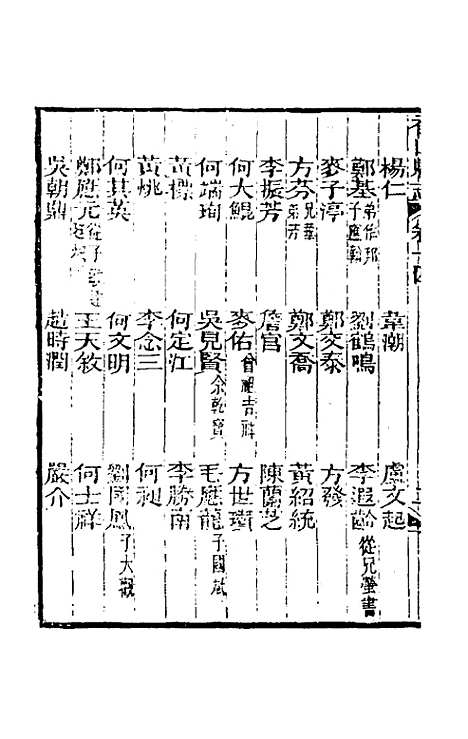 楊仁 韋潮 盧文起
鄭基 弟作邦 子應翰 劉鶴鳴 李遐齡 從兄螢書
麥子淳 鄭交泰 方發
方芬 兄華 弟芳 鄭文喬 黃紹統
李振芳 詹官 陳蘭芝
何大鯤 麥佑 曾祖吉 方世瓚
何端珣 吳見賢 余乾寶 毛應龍 子國斌
黃標 何定江 李勝南
黃桃 李念三 何昶
何其英 何文明 劉國鳳 子大觀
鄭應元 從子 王天敘 何士祥
吳朝鼎 趙時潤 嚴介